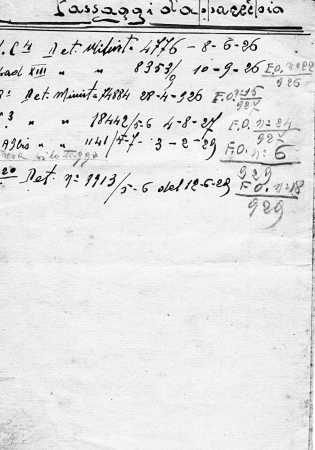 Passaggi d'apparecchio
Det. Minist. 4776 - 8-6-26
XIII " " 8353/ 10-9-26 F.O.
926
Det. Minist. 74884 28-4-926 F.O. n° 15
927
3 " " 18442/5-6 4-8-27 F.O. n° 24
927
" " 1141/5-7- 3-2-29 F.O. n° 6
929
20 Det. n° 9913/5-6 del 12-6-29 F.O. n° 18
929